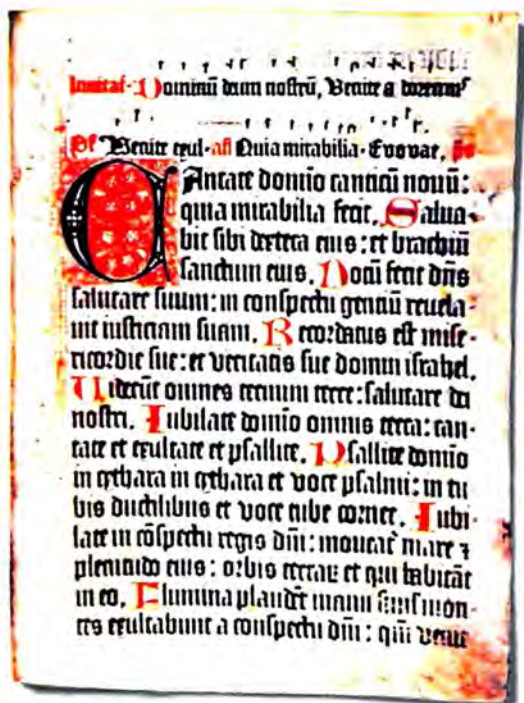 Invitat. Dominū deum nostrū, Venite adorem⁹
Ps Venite exul. añ Quia mirabilia. Evovae. ps
Cantate domīo canticū novū:
quia mirabilia fecit. Salua-
bit sibi dextera eius: et brachiū
sanctum eius. Notū fecit dn̄s
salutare suum: in conspectu gentiū reuela-
uit iusticiam suam. Recordatus est mise-
ricordie sue: et veritatis sue domui israhel.
Uiderūt omnes termini terre: salutare dei
nostri. Iubilate domīo omnis terra: can-
tate et exultate et psallite. Psallite domīo
in cythara in cythara et voce psalmi: in tu
bis ductilibus et voce tube cornee. Iubi-
late in cōspectu regis dn̄i: moueat̄ mare ⁊
plenitudo eius: orbis terraꝝ et qui habitāt
in eo. Flumina plaudēt manu simul mon-
tes exultabunt a conspectu dn̄i: qm̄ venit